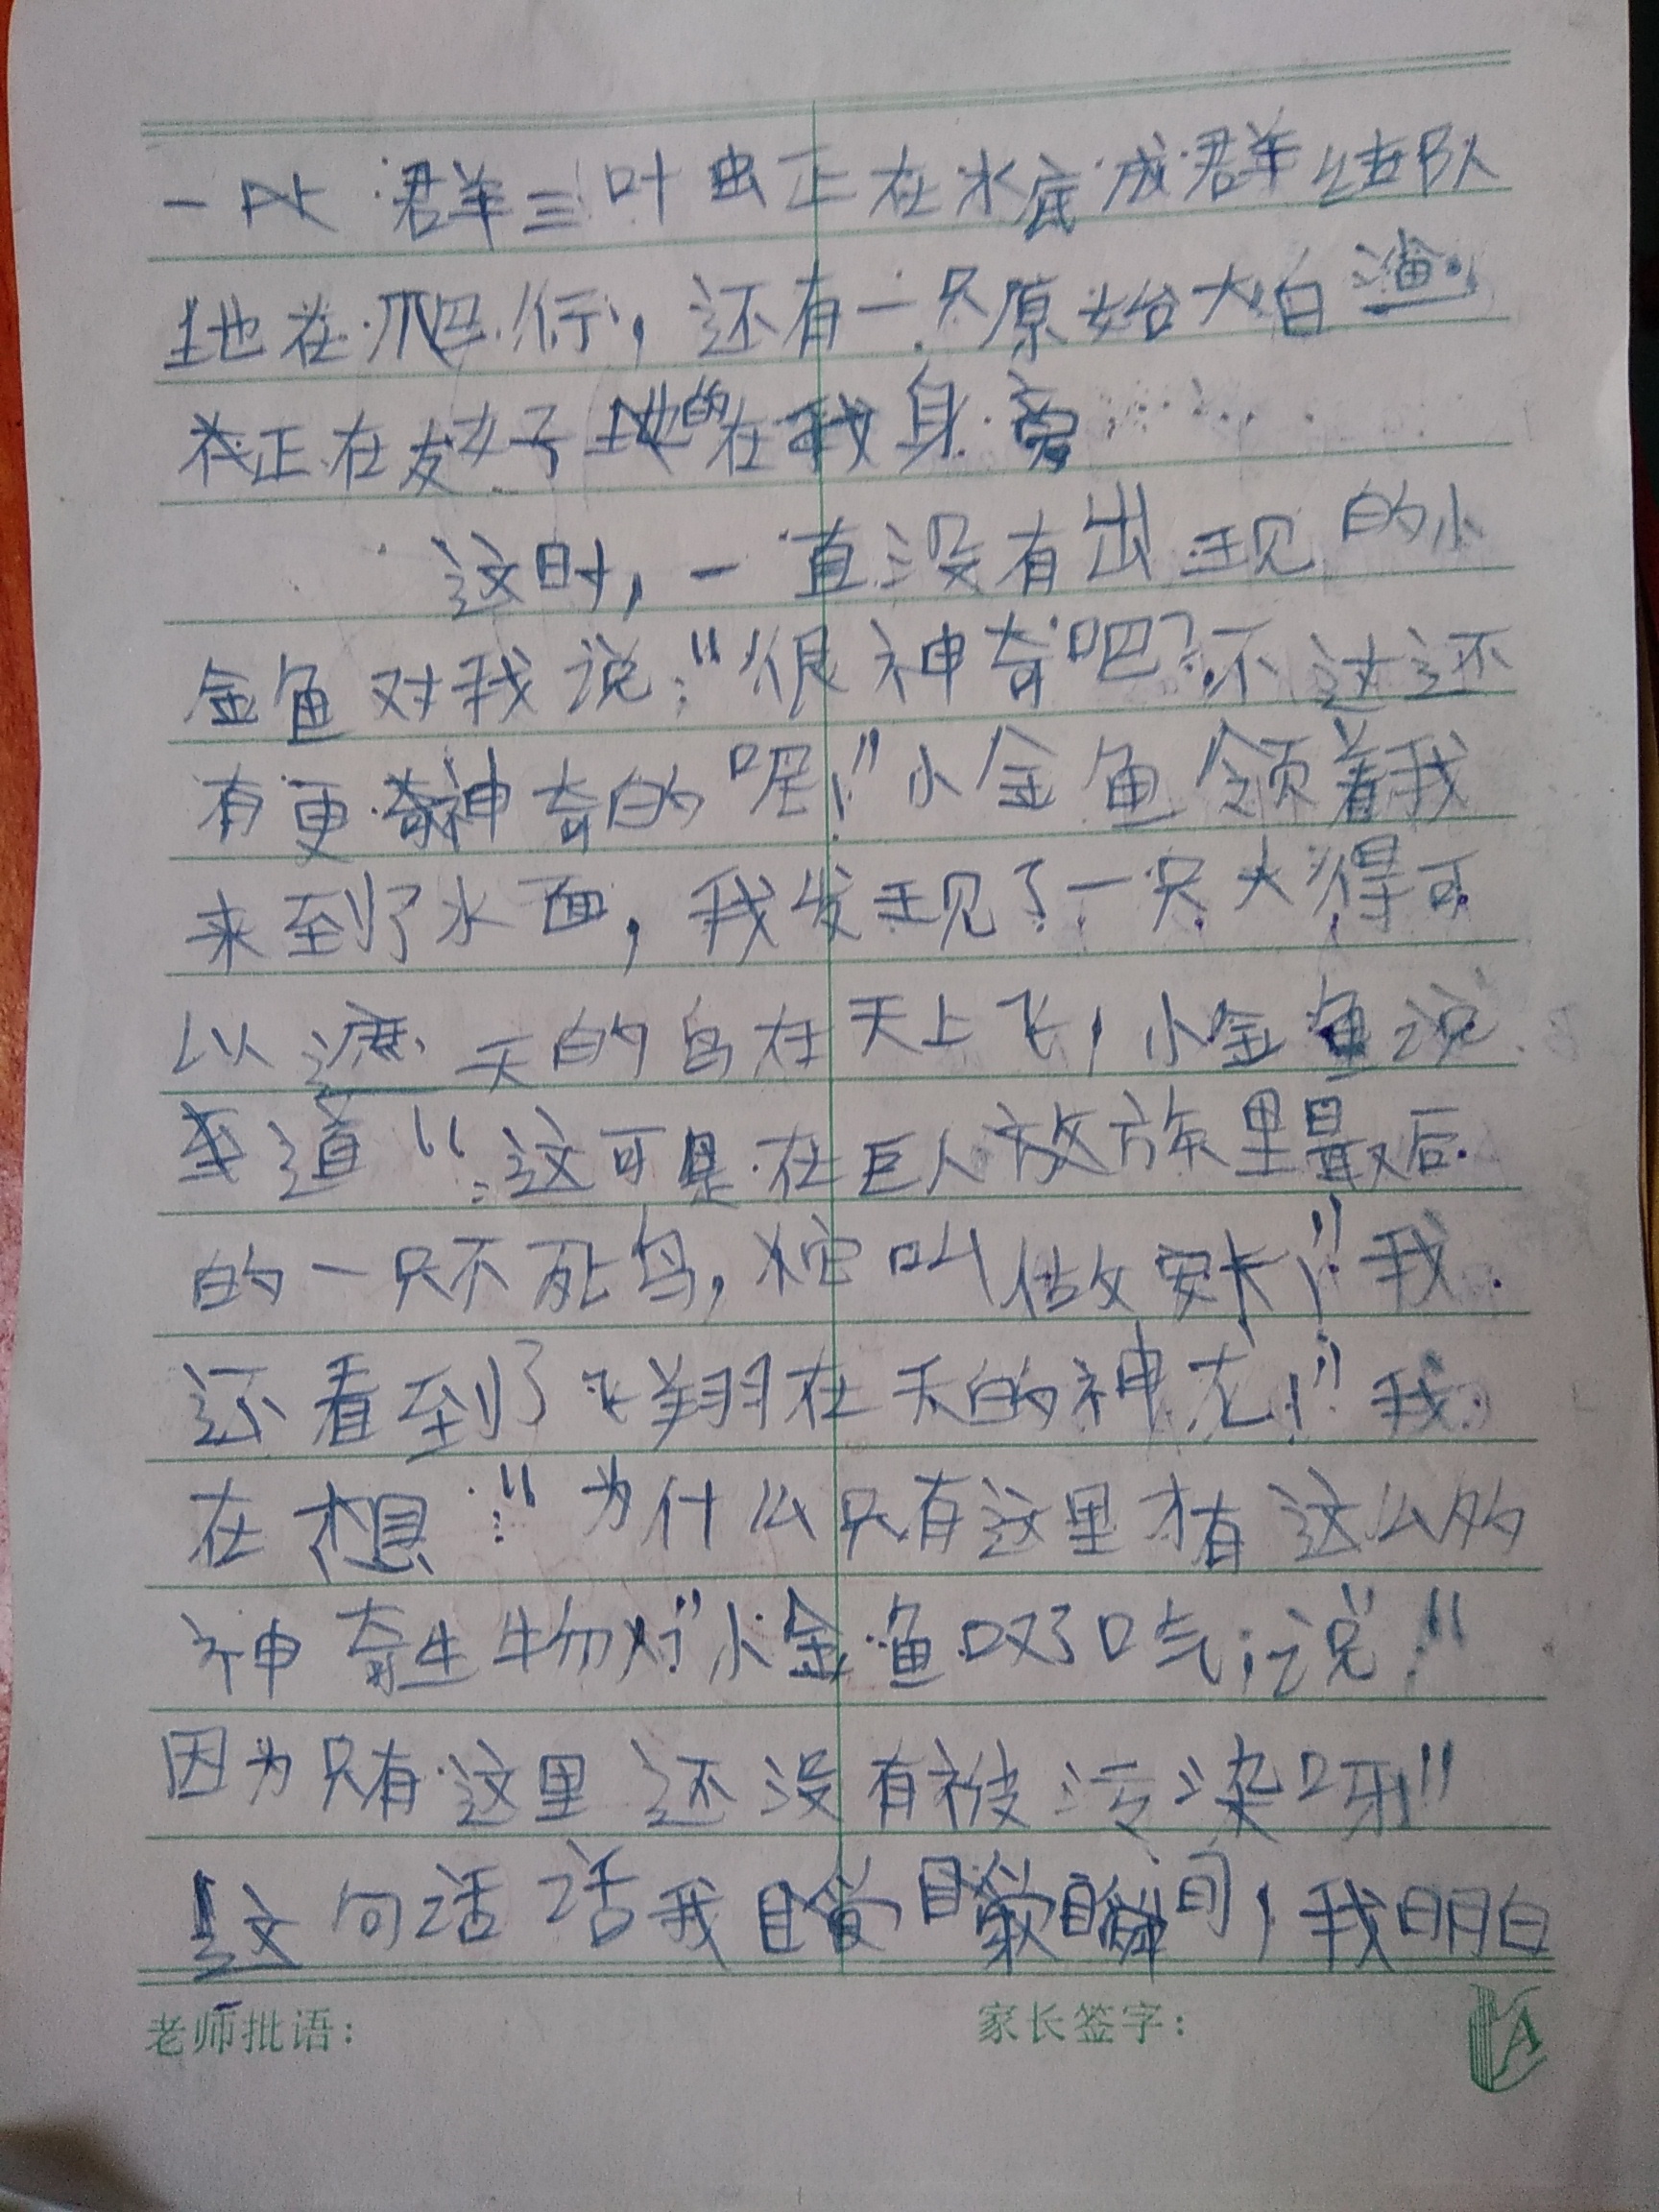 一群三叶虫正在水底成群结队
地在爬行，还有一只原始大白渔
正在友好地在我身旁
这时，一直没有出现的小
金鱼对我说：“很神奇吧？不过还
有更神奇的呢！”小金鱼领着我
来到了水面，我发现了一只大得可
以遮天的鸟在天上飞，小金鱼说
道“：这可是在巨人族里最后
的一只不死鸟，它叫做安卡！”我
还看到了飞翔在天的神龙！”我
在想：“为什么只有这里才有这么多
神奇生物？”小金鱼叹了口气，说：“
因为只有这里还没有被污染呀！”
这句话我瞬间，我明白
老师批语：
家长签字：